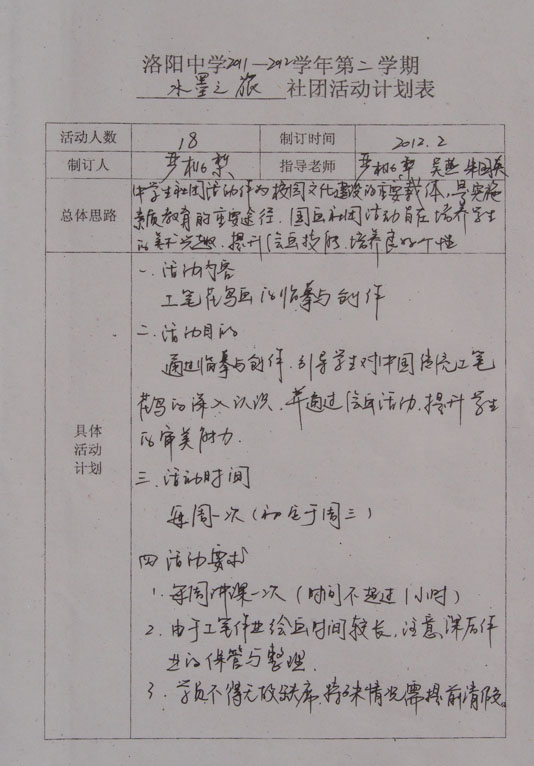 洛阳中学2011—2012学年第二学期
水墨之旅 社团活动计划表
活动人数 18 制订时间 2012.2
制订人 指导老师
总体思路
中学生社团活动作为校园文化建设的重要载体,是实施
素质教育的重要途径.国画社团活动旨在培养学生
的美术兴趣.提升绘画技能.培养良好个性
具体
活动
计划
一.活动内容
工笔花鸟画的临摹与创作
二.活动目的
通过临摹与创作.引导学生对中国传统工笔
花鸟的深入认识.并通过绘画活动.提升学生
的审美能力.
三.活动时间
每周一次(初定于周三)
四 活动要求
1.每周讲课一次(时间不超过1小时)
2.由于工笔作业绘画时间较长,注意课后作
业的保管与整理.
3.学员不得无故缺席.特殊情况需提前请假。